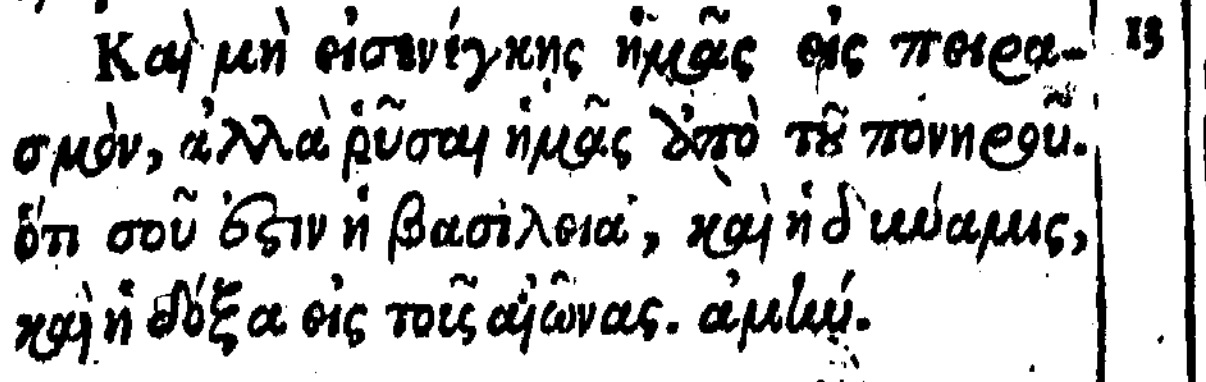 Καὶ μὴ εἰσενέγκης ἡμᾶς εἰς πειρα- 13
σμὸν, ἀλλὰ ῥῦσαι ἡμᾶς ἀπὸ τοῦ πονηροῦ.
ὅτι σοῦ ἐστιν ἡ βασιλεία, καὶ ἡ δύναμις,
καὶ ἡ δόξα εἰς τοὺς αἰῶνας. ἀμήν.